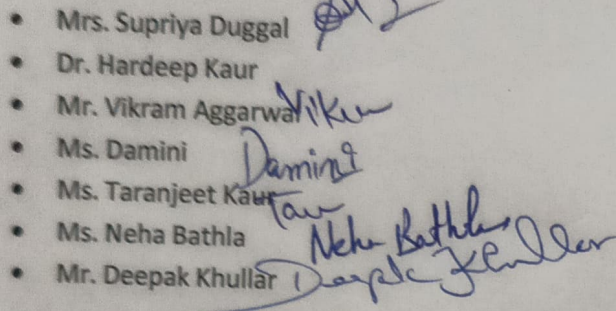 • Mrs. Supriya Duggal
• Dr. Hardeep Kaur
• Mr. Vikram Aggarwal Vikram
• Ms. Damini Damini
• Ms. Taranjeet Kaur Tau
• Ms. Neha Bathla Neha Bathla
• Mr. Deepak Khullar Deepak Khullar